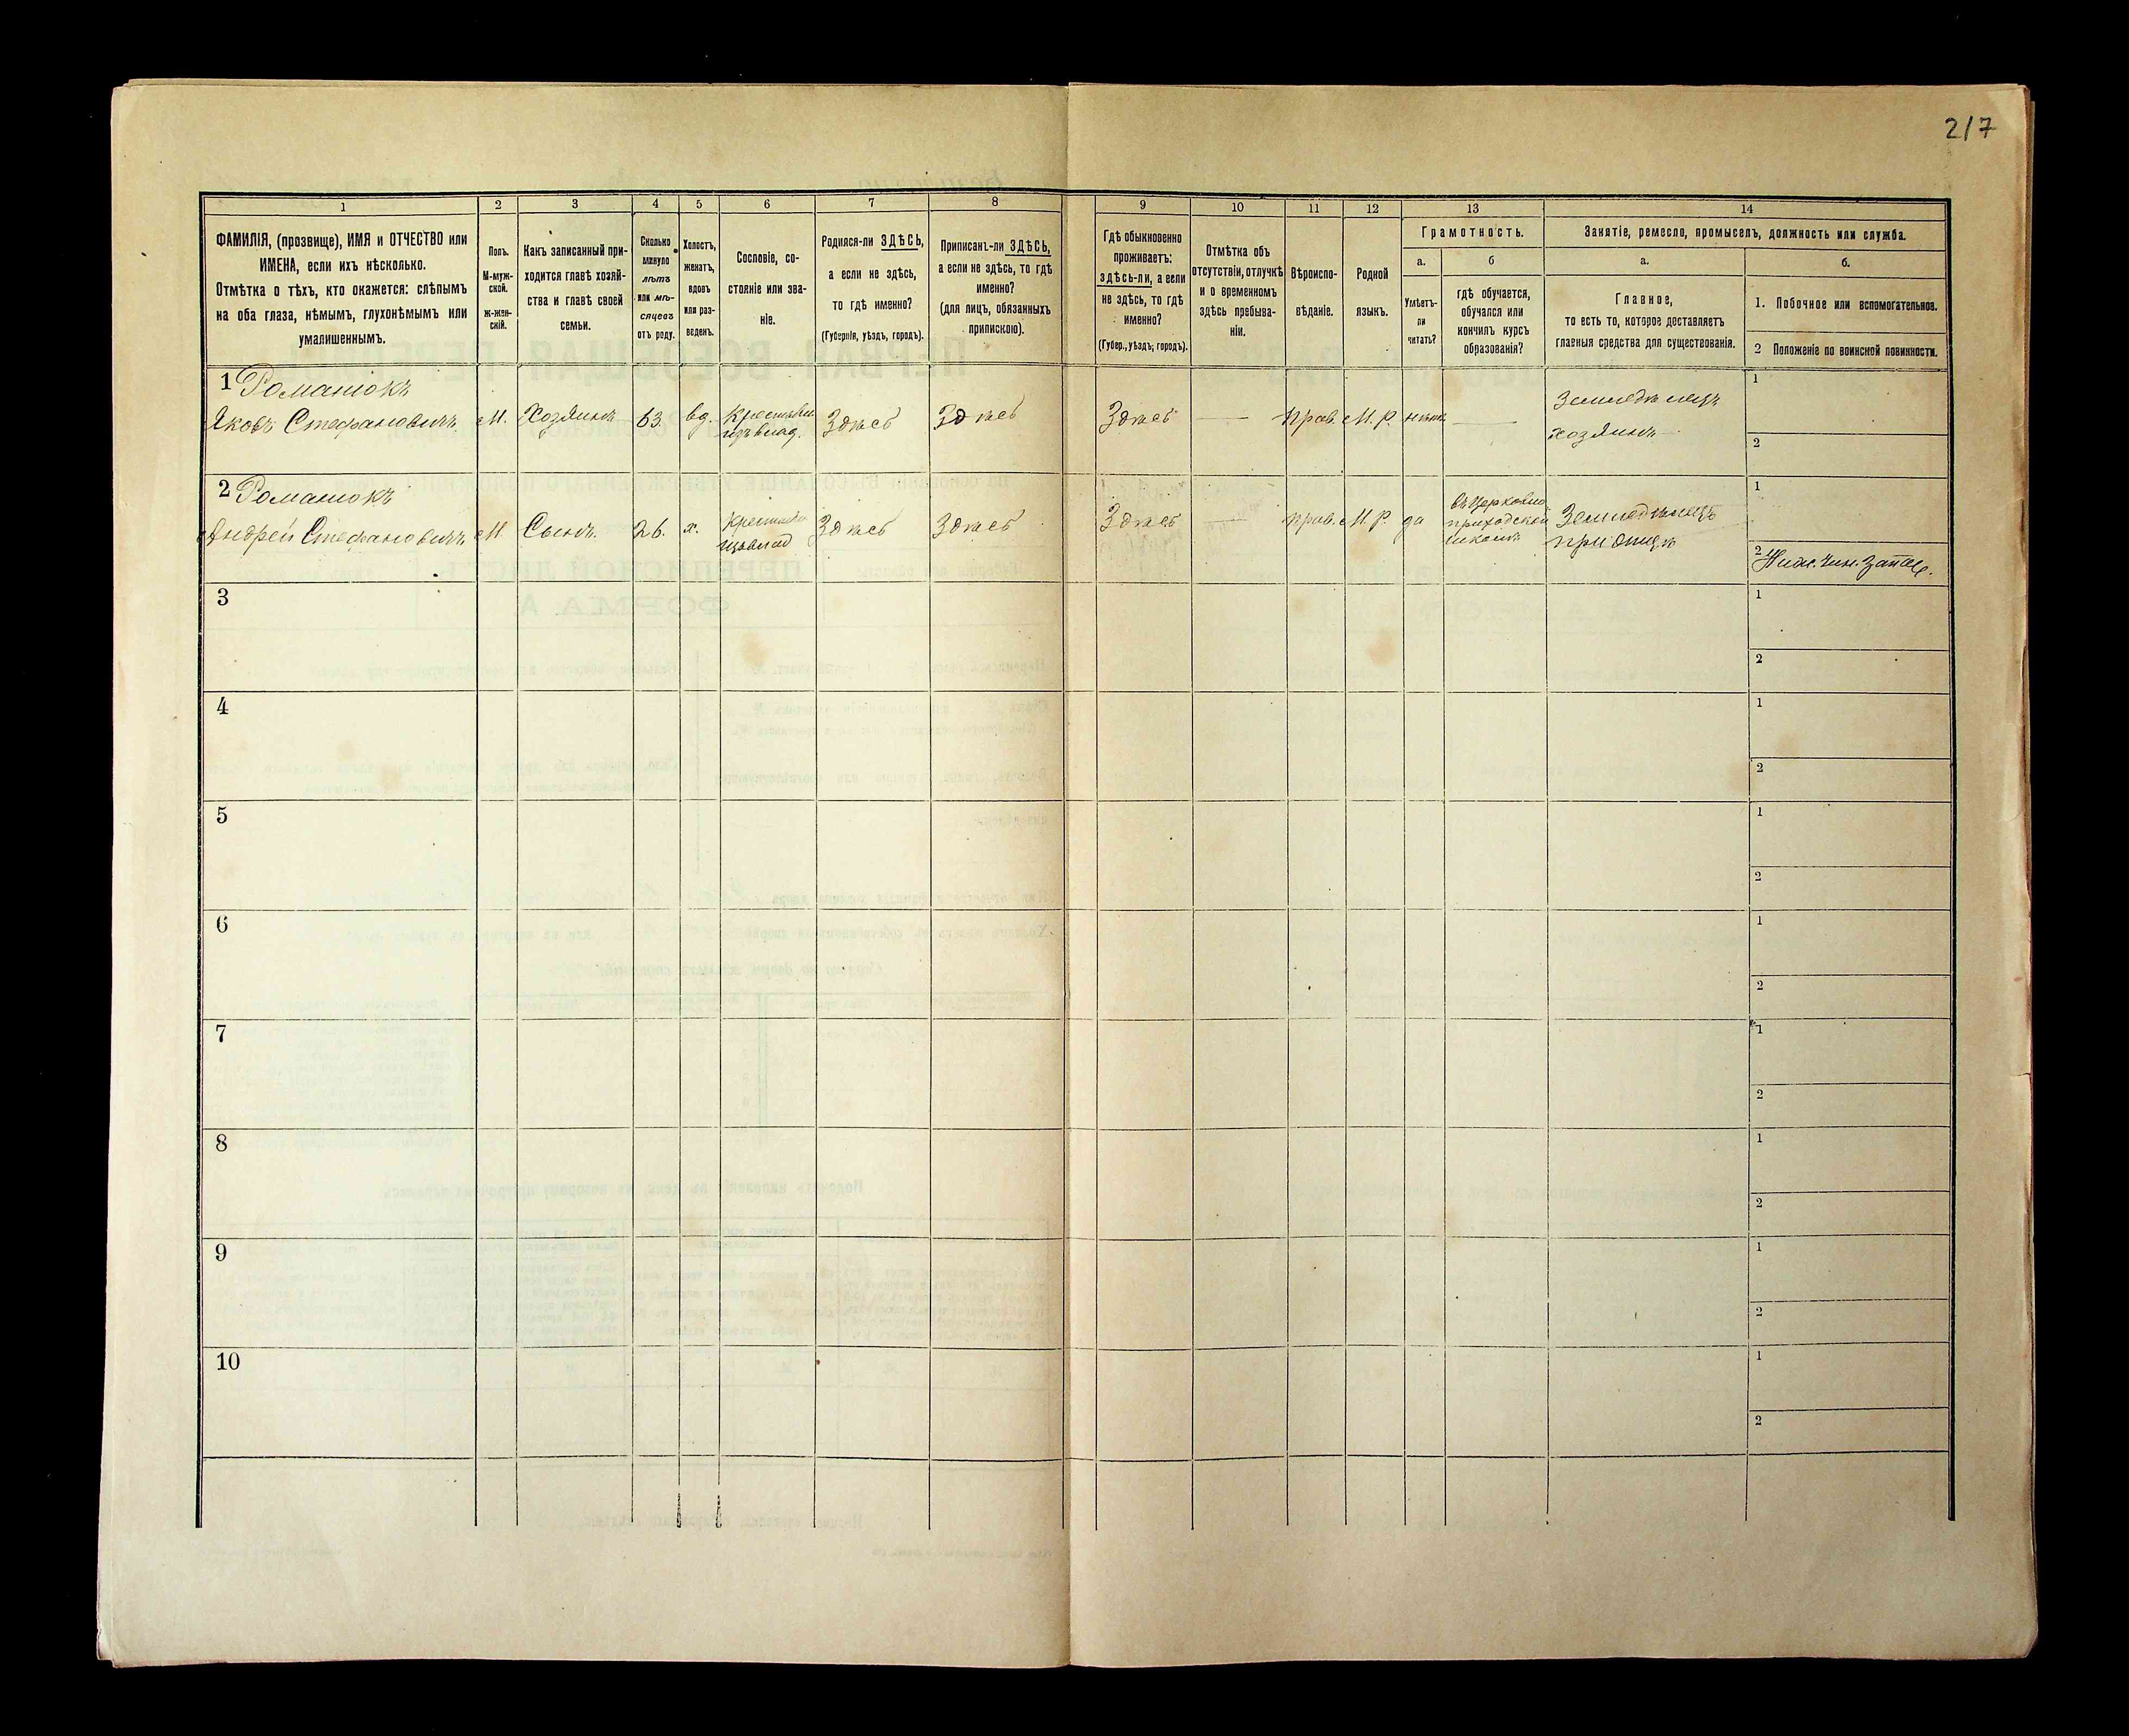 217
1
2
3
4
5
6
7
8
9
10
11
12
13
14
ФАМИЛІЯ, (прозвище), ИМЯ и ОТЧЕСТВО или
ИМЕНА, если ихъ нѣсколько.
Отмѣтка о тѣхъ, кто окажется: слѣпымъ
на оба глаза, нѣмымъ, глухонѣмымъ или
умалишеннымъ.
Полъ.
М-муж-
ской.
Ж-жен-
скій.
Какъ записанный при-
ходится главѣ хозяй-
ства и главѣ своей
семьи.
Сколько
минуло
лѣтъ
или мѣ-
сяцевъ
отъ роду.
Холостъ,
женатъ,
вдовъ
или раз-
веденъ.
Сословіе, со-
стояніе или зва-
ніе.
Родился-ли ЗДѢСЬ,
а если не здѣсь,
то гдѣ именно?
(Губернія, уѣздъ, городъ).
Приписанъ-ли ЗДѢСЬ,
а если не здѣсь, то гдѣ
именно?
(для лицъ, обязанныхъ
припискою).
Гдѣ обыкновенно
проживаетъ:
здѣсь-ли, а если
не здѣсь, то гдѣ
именно?
(Губер., уѣздъ, городъ).
Отмѣтка объ
отсутствіи, отлучкѣ
и о временномъ
здѣсь пребыва-
ніи.
Вѣроиспо-
вѣданіе.
Родной
языкъ.
Грамотность.
а.
Умѣетъ-
ли
читать?
б
гдѣ обучается,
обучался или
кончилъ курсъ
образованія?
Занятіе, ремесло, промыселъ, должность или служба.
а.
Главное,
то есть то, которое доставляетъ
главныя средства для существованія.
б.
1. Побочное или вспомогательное.
2 Положеніе по воинской повинности.
1 Романюкъ
Яковъ Стефановичъ М. Хозяинъ 63. вд. Крестьян. Здѣсь Здѣсь Здѣсь — Прав. М. Р. нѣтъ — Земледѣлецъ
хозяинъ
1
2
2 Романюкъ
Андрей Стефановичъ М. Сынъ. 26. х. Здѣсь Здѣсь Здѣсь — Прав. М. Р. да въ Церковно
приходской
школѣ
Земледѣлецъ
при отцѣ
1
2 Нижн. чин. запас.
3
1
2
4
1
2
5
1
2
6
1
2
7
1
2
8
1
2
9
1
2
10
1
2